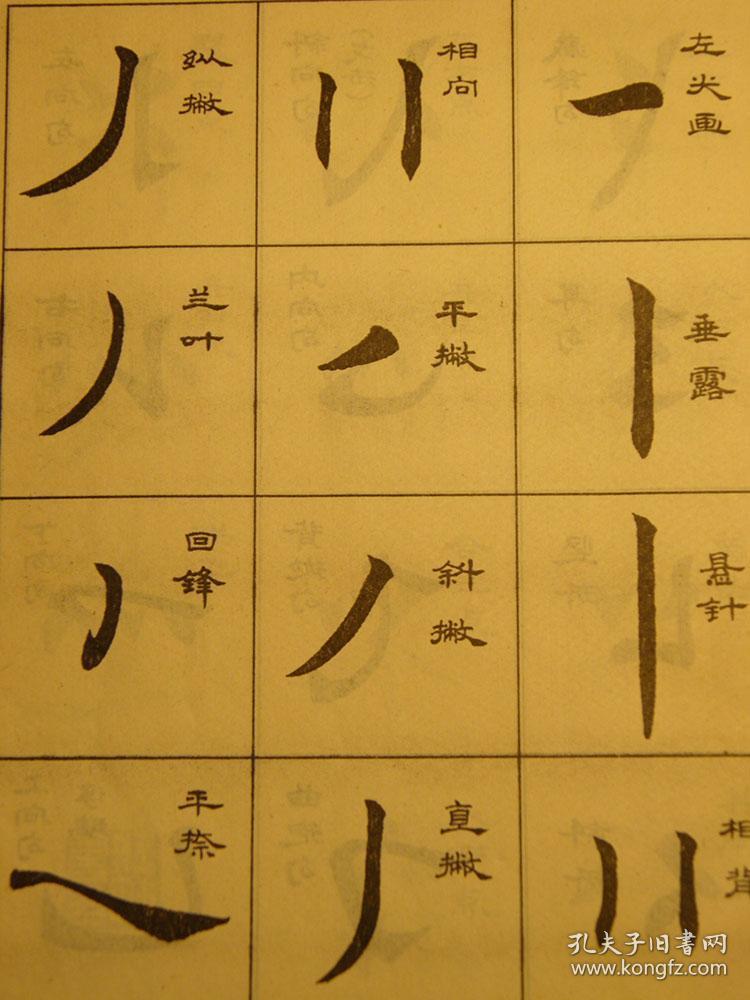 左尖画
垂露
悬针
相背
相向
平撇
斜撇
直撇
纵撇
兰叶
回锋
平捺
孔夫子旧书网
www.kongfz.com